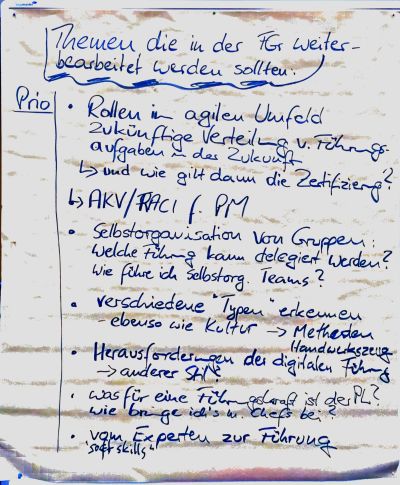 Themen die in der FGr weiter-
bearbeitet werden sollten:
Prio
• Rollen im agilen Umfeld
zukünftige Verteilung v. Führungs-
aufgaben in der Zukunft
↳ und wie gibt dann die Zertifizierg?
↳ AKV/RACI f. PM
• Selbstorganisation von Gruppen:
welche Führung kann delegiert werden?
Wie führe ich selbstorg. Teams?
• verschiedene "Typen" erkennen
- ebenso wie Kultur → Methoden
Handwerkszeug
• Herausforderungen der digitalen Führung
→ anderer Stil?
• was für eine Führungskraft ist der PL?
wie bringe ich's m. Chefs bei?
• vom Experten zur Führung
"soft skills"